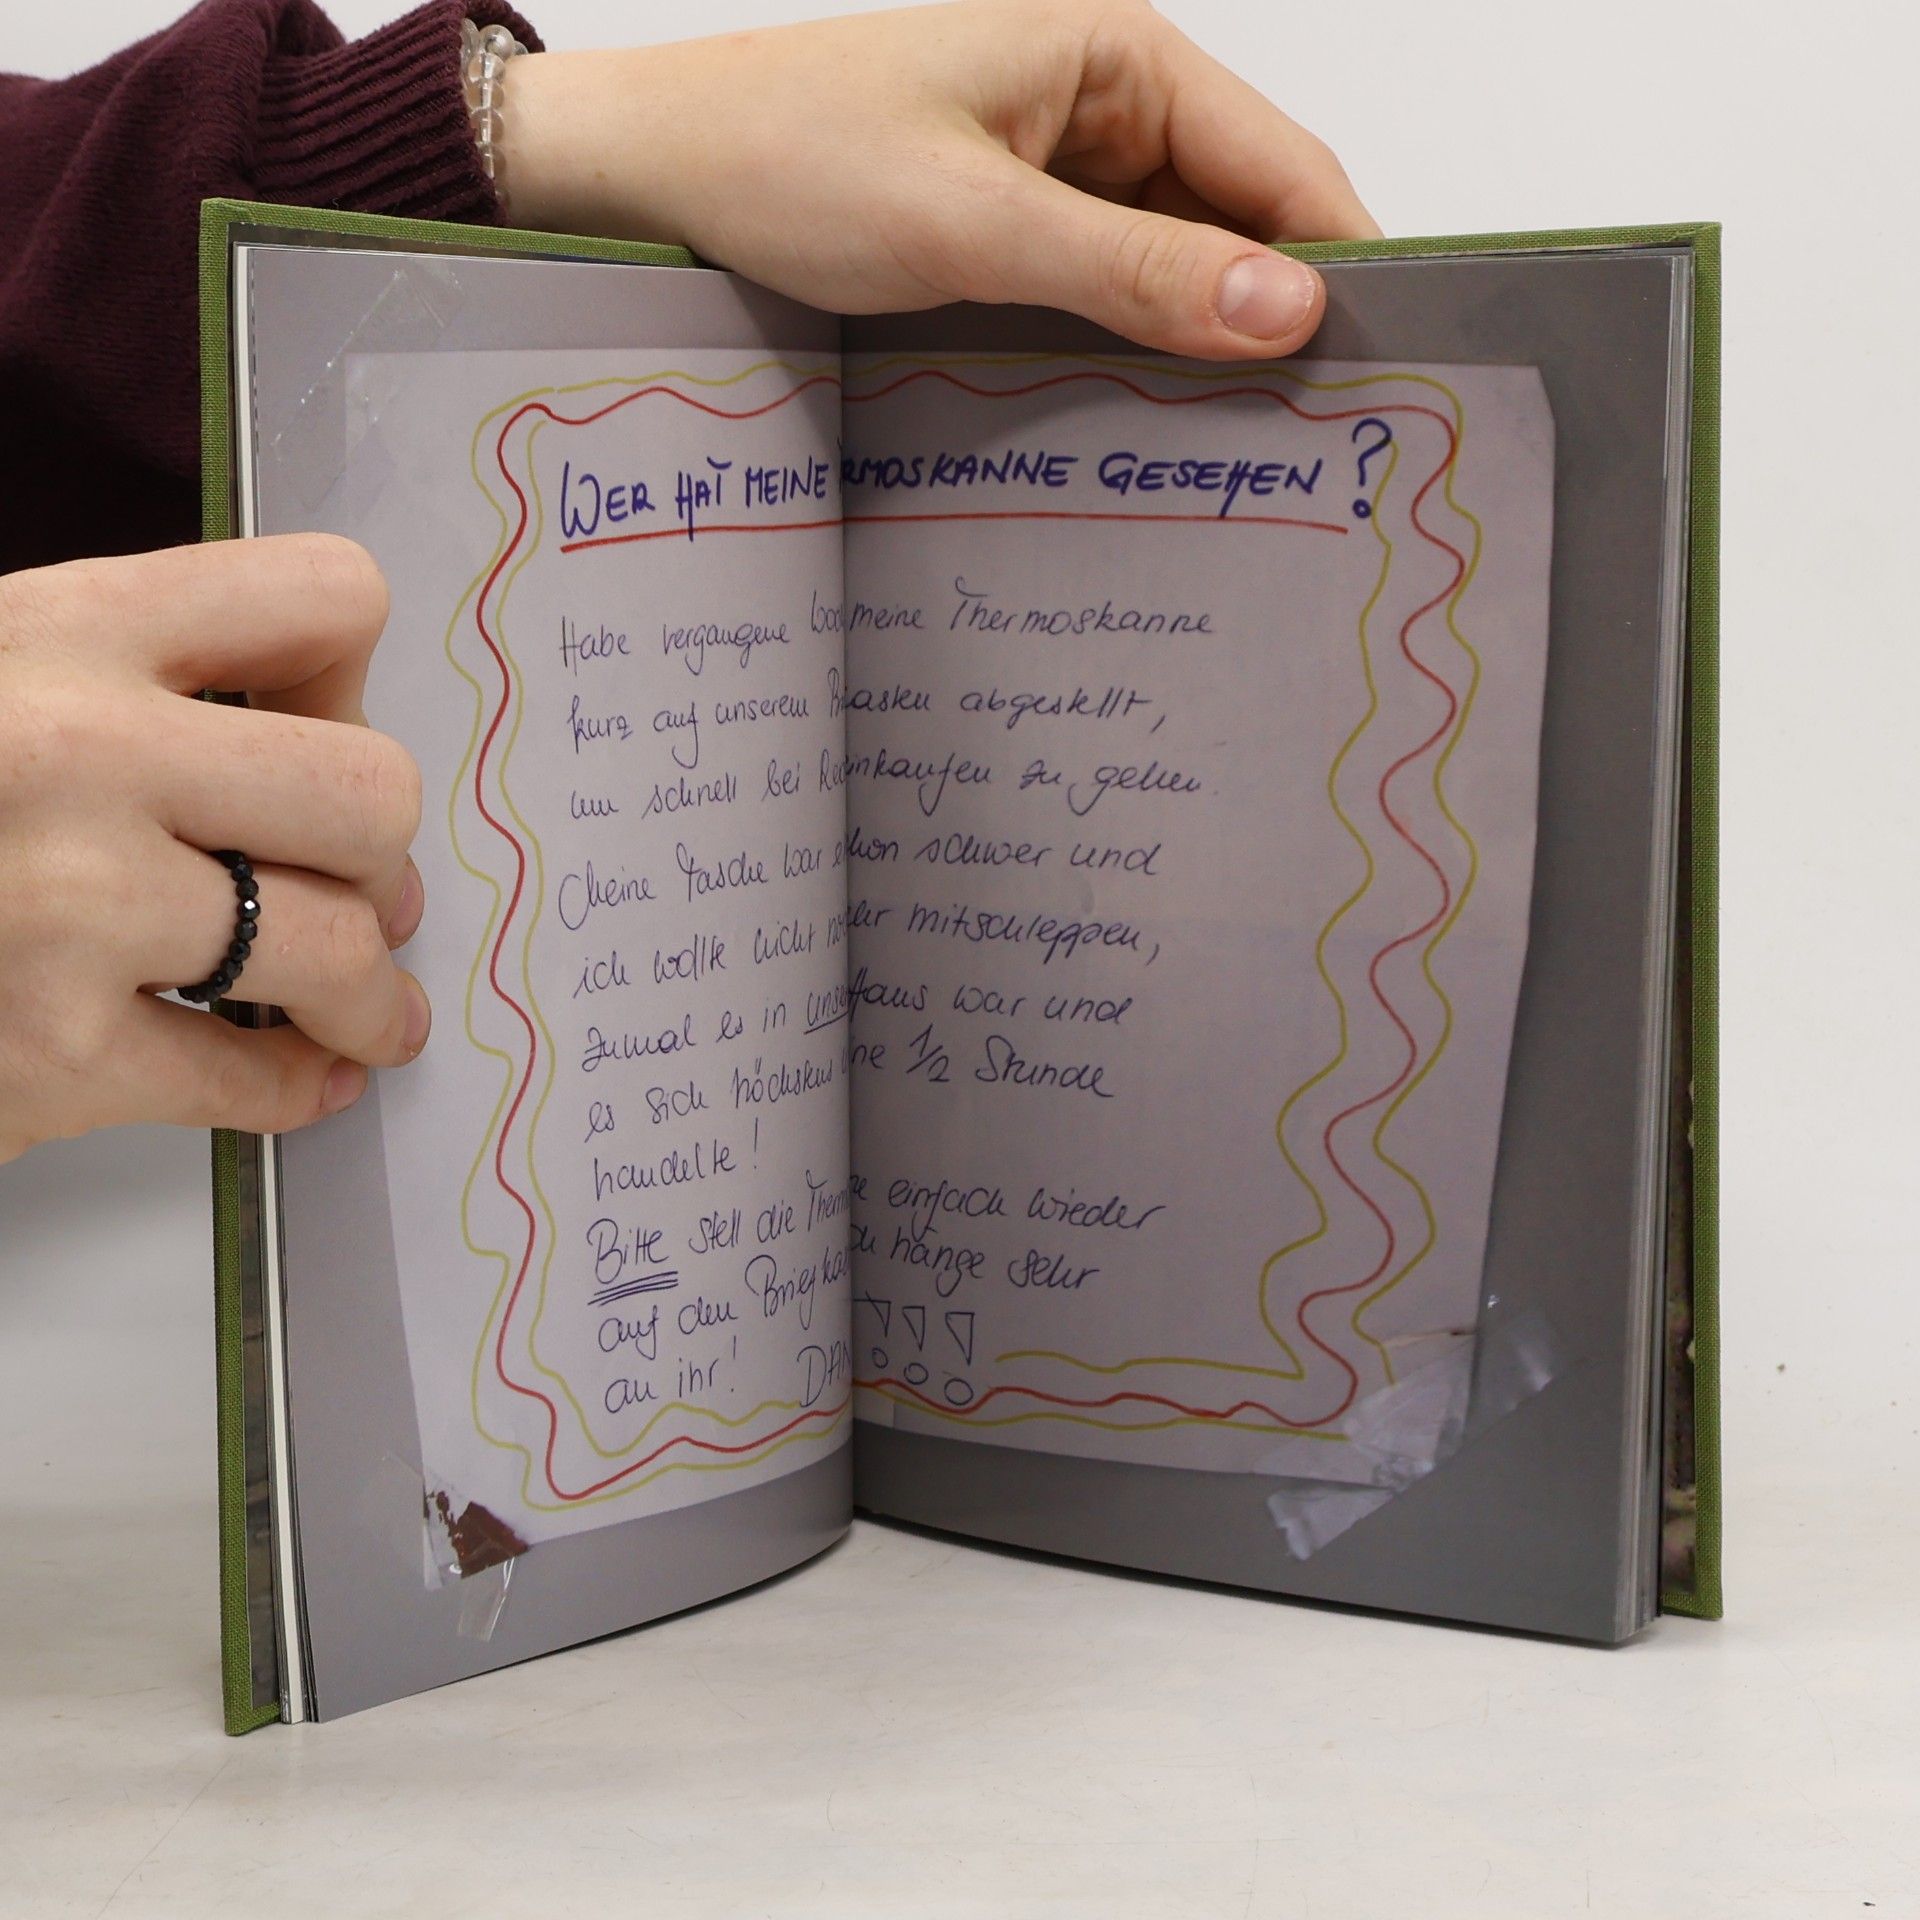 WER HAT MEINE RMOSKANNE GESEHEN ?
Habe vergangene Woc meine Thermoskanne
kurz auf unserem asten abgestellt,
um schnell bei einkaufen zu gehen.
Meine Tasche war schon schwer und
ich wollte nicht mitschleppen,
zumal es in unse Haus war und
es sich höchstens ne 1/2 Stunde
handelte !
Bitte stell die Therm ne einfach wieder
auf den Briefkas hänge sehr
an ihr! DAN !!!